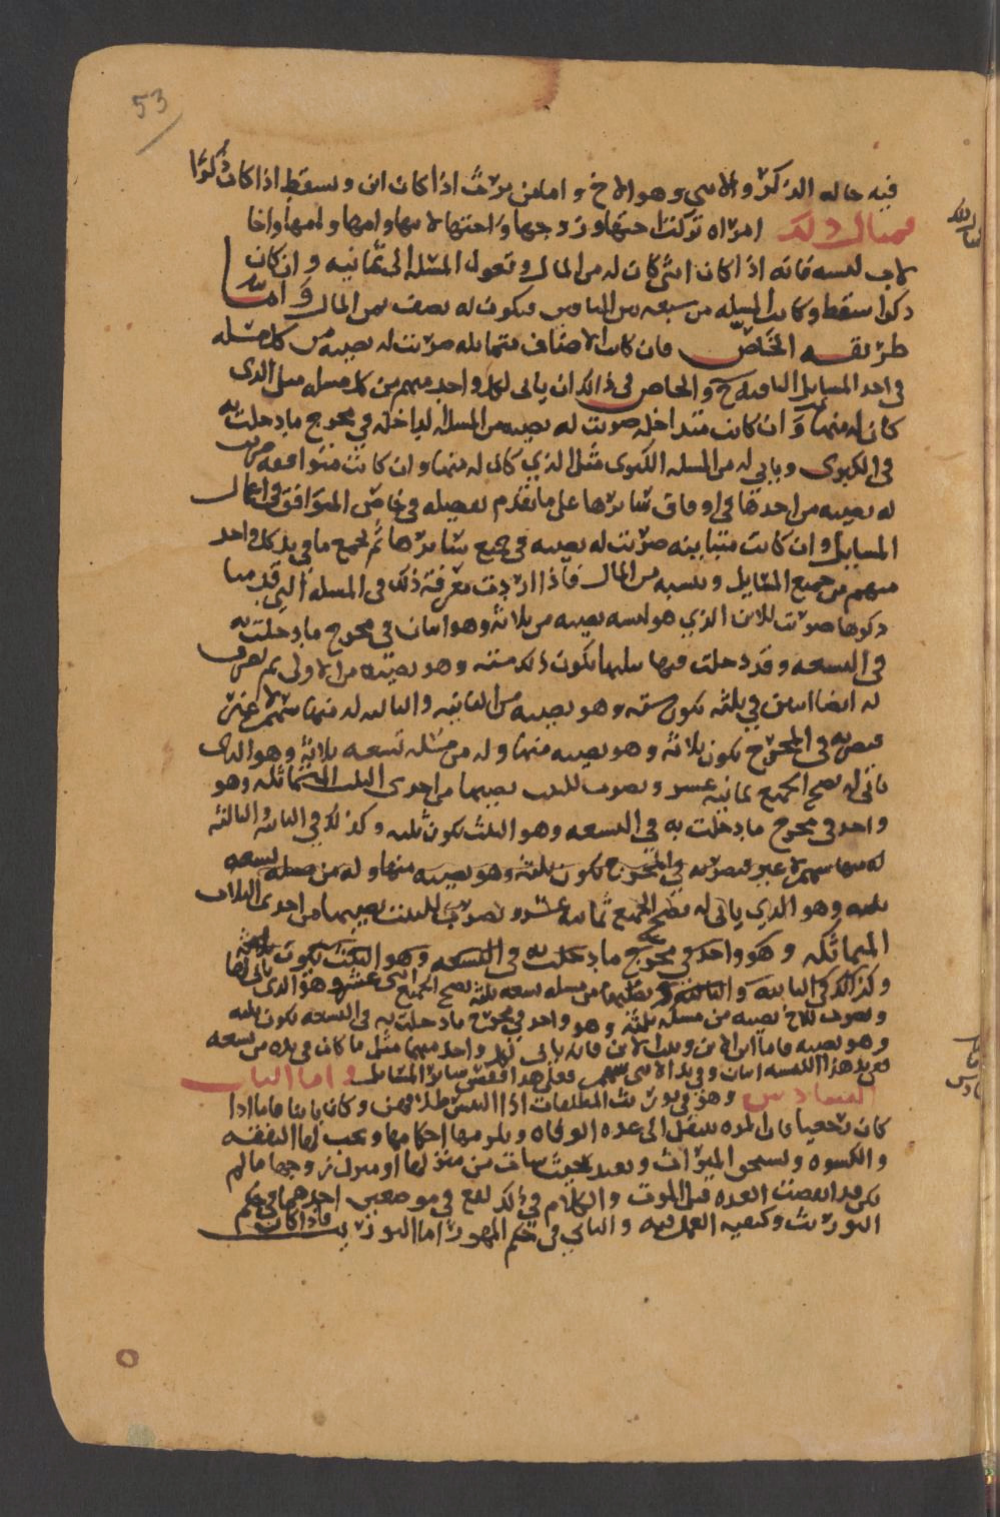 53
فيه حاله الذكر والانثى وهو الاخ و اما من يرث اذا كان انثى ويسقط اذا كان ذكرا
فمثال ذلك امراه تركت اختها وزوجها واختها لابيها وامها وامها واخا
لاب لبسه فانه اذا كان انثى كان له من المال وتعول المسئلة الى ثمانيه وان كان
ذكرا سقط وكانت المسئله من سبعه فيكون له نصف ثمن المال واما
طريقه الخاص فان كانت الاصناف متماثله ضربت له نصيبه من كل مسئله
في احد المسايل الباقيه والخاص في ذلك ان ياتي لكل واحد منهم من كل مسئله مثل الذي
كان له منها وان كانت متداخله ضربت له نصيبه من المسئله الداخله في مخرج ما دخلت به
في الكبرى وياتي له من المسئله الكبرى مثل الذي كان له منها وان كانت متوافقه ضربت
له نصيبه من احدها في اوفاق سايرها على ما تقدم تفصيله في خاص الموافق في اعمال
المسايل وان كانت متباينه ضربت له نصيبه في جميع سايرها ثم تجمع ما في يد كل واحد
منهم من جميع المسايل وتنسبه من المال فاذا اردت معرفة ذلك في المسئله التي قدمنا
ذكرها ضربت للابن الذي هو لبسه نصيبه من ثلاثة وهو اثنان في مخرج ما دخلت به
في التسعه وقد دخلت فيها بثلثها يكون ذلك سته وهو نصيبه من الاولى ثم تضرب
له ايضا اثنين في ثلثه يكون سته وهو نصيبه من الثانيه والثالثه له منها سهم لا غير
فتضربه في المخرج يكون ثلاثة وهو نصيبه منها وله من مسئلة تسعه ثلاثة وهو الذي
ياتي له تصح الجميع ثمانيه عشر وتضرب للبنت نصيبها من احدى الثلث المتماثله وهو
واحد في مخرج ما دخلت به في التسعه وهو الثلث يكون ثلثه وكذلك في الثانيه والثالثه
له منها سهم لا غير فتضربه في المخرج يكون ثلثه وهو نصيبه منها وله من مسئله تسعه
ثلثه وهو الذي ياتي له تصح الجميع ثمانيه عشر وتضرب للبنت نصيبها من احدى الثلاث
المتماثله وهو واحد في مخرج ما دخلت به في التسعه وهو الثلث يكون ثلاثة
وكذلك في الثانيه والثالثه ونصيبها من مسئله تسعه ثلثه تصح الجميع اثنى عشر وهو الذي ياتي لها
وتضرب للاخ نصيبه من مسئلة ثلثه وهو واحد في مخرج ما دخلت به في التسعه يكون ثلثه
وهو نصيبه فاما ابن الابن وبنت الابن فانه ياتي لكل واحد منهما مثل ما كان في يده من تسعه
ففي يد هذا اللبسه اثنان وفي يد الانثى سهم فعلى هذا فقس سائر المسايل واما الباب
السادس وهو في توريث المطلقات اذا التبس طلاقهن وكان باينا فاما اذا
كان رجعيا فان المده تنتقل الى عده الوفاه ويلزمها احكامها ويجب لها النفقه
والكسوه وتستحق الميراث وتعتد بحيث بانت من منزلها او منزل زوجها ما لم
تكن قد انقضت العده قبل الموت والكلام في ذلك يقع في موضعين احدهما في حكم
التوريث وكيفيه العمل فيه والثاني في حكم المهور اما التوريث فاذا كان